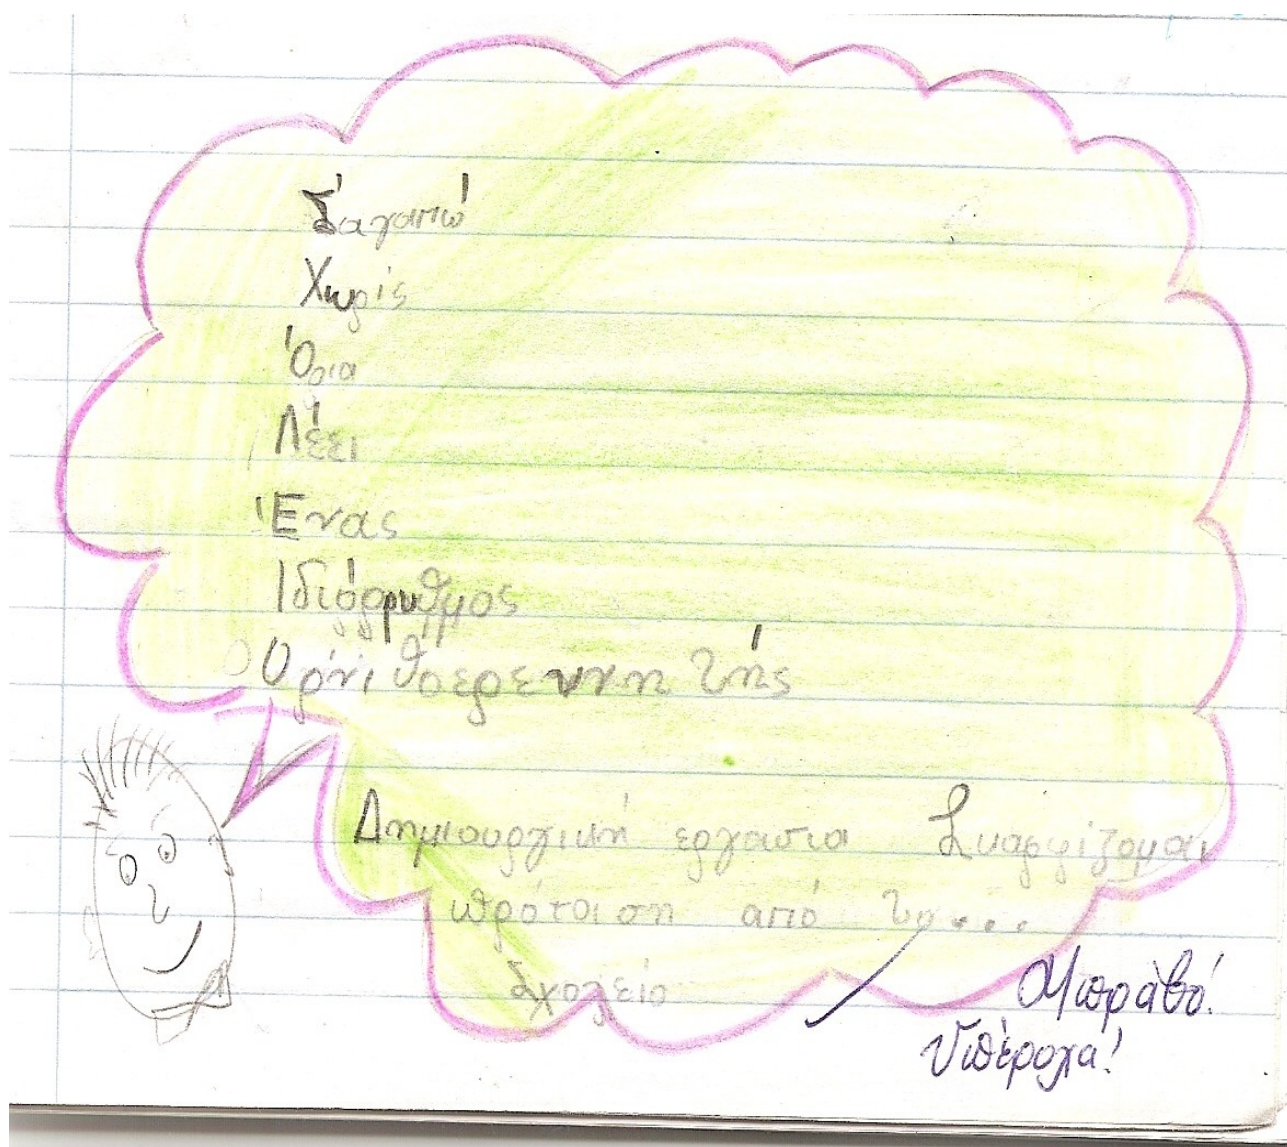 Σ'αγαπώ
Χωρίς
Όρια
Λέει
Ένας
Ιδιόρρυθμος
Ορνιθοερευνητής
Δημιουργική εργασια Σκαρφίζομαι
πρόταση από το...
Σχολείο
Μπράβο!
Υπέροχα!